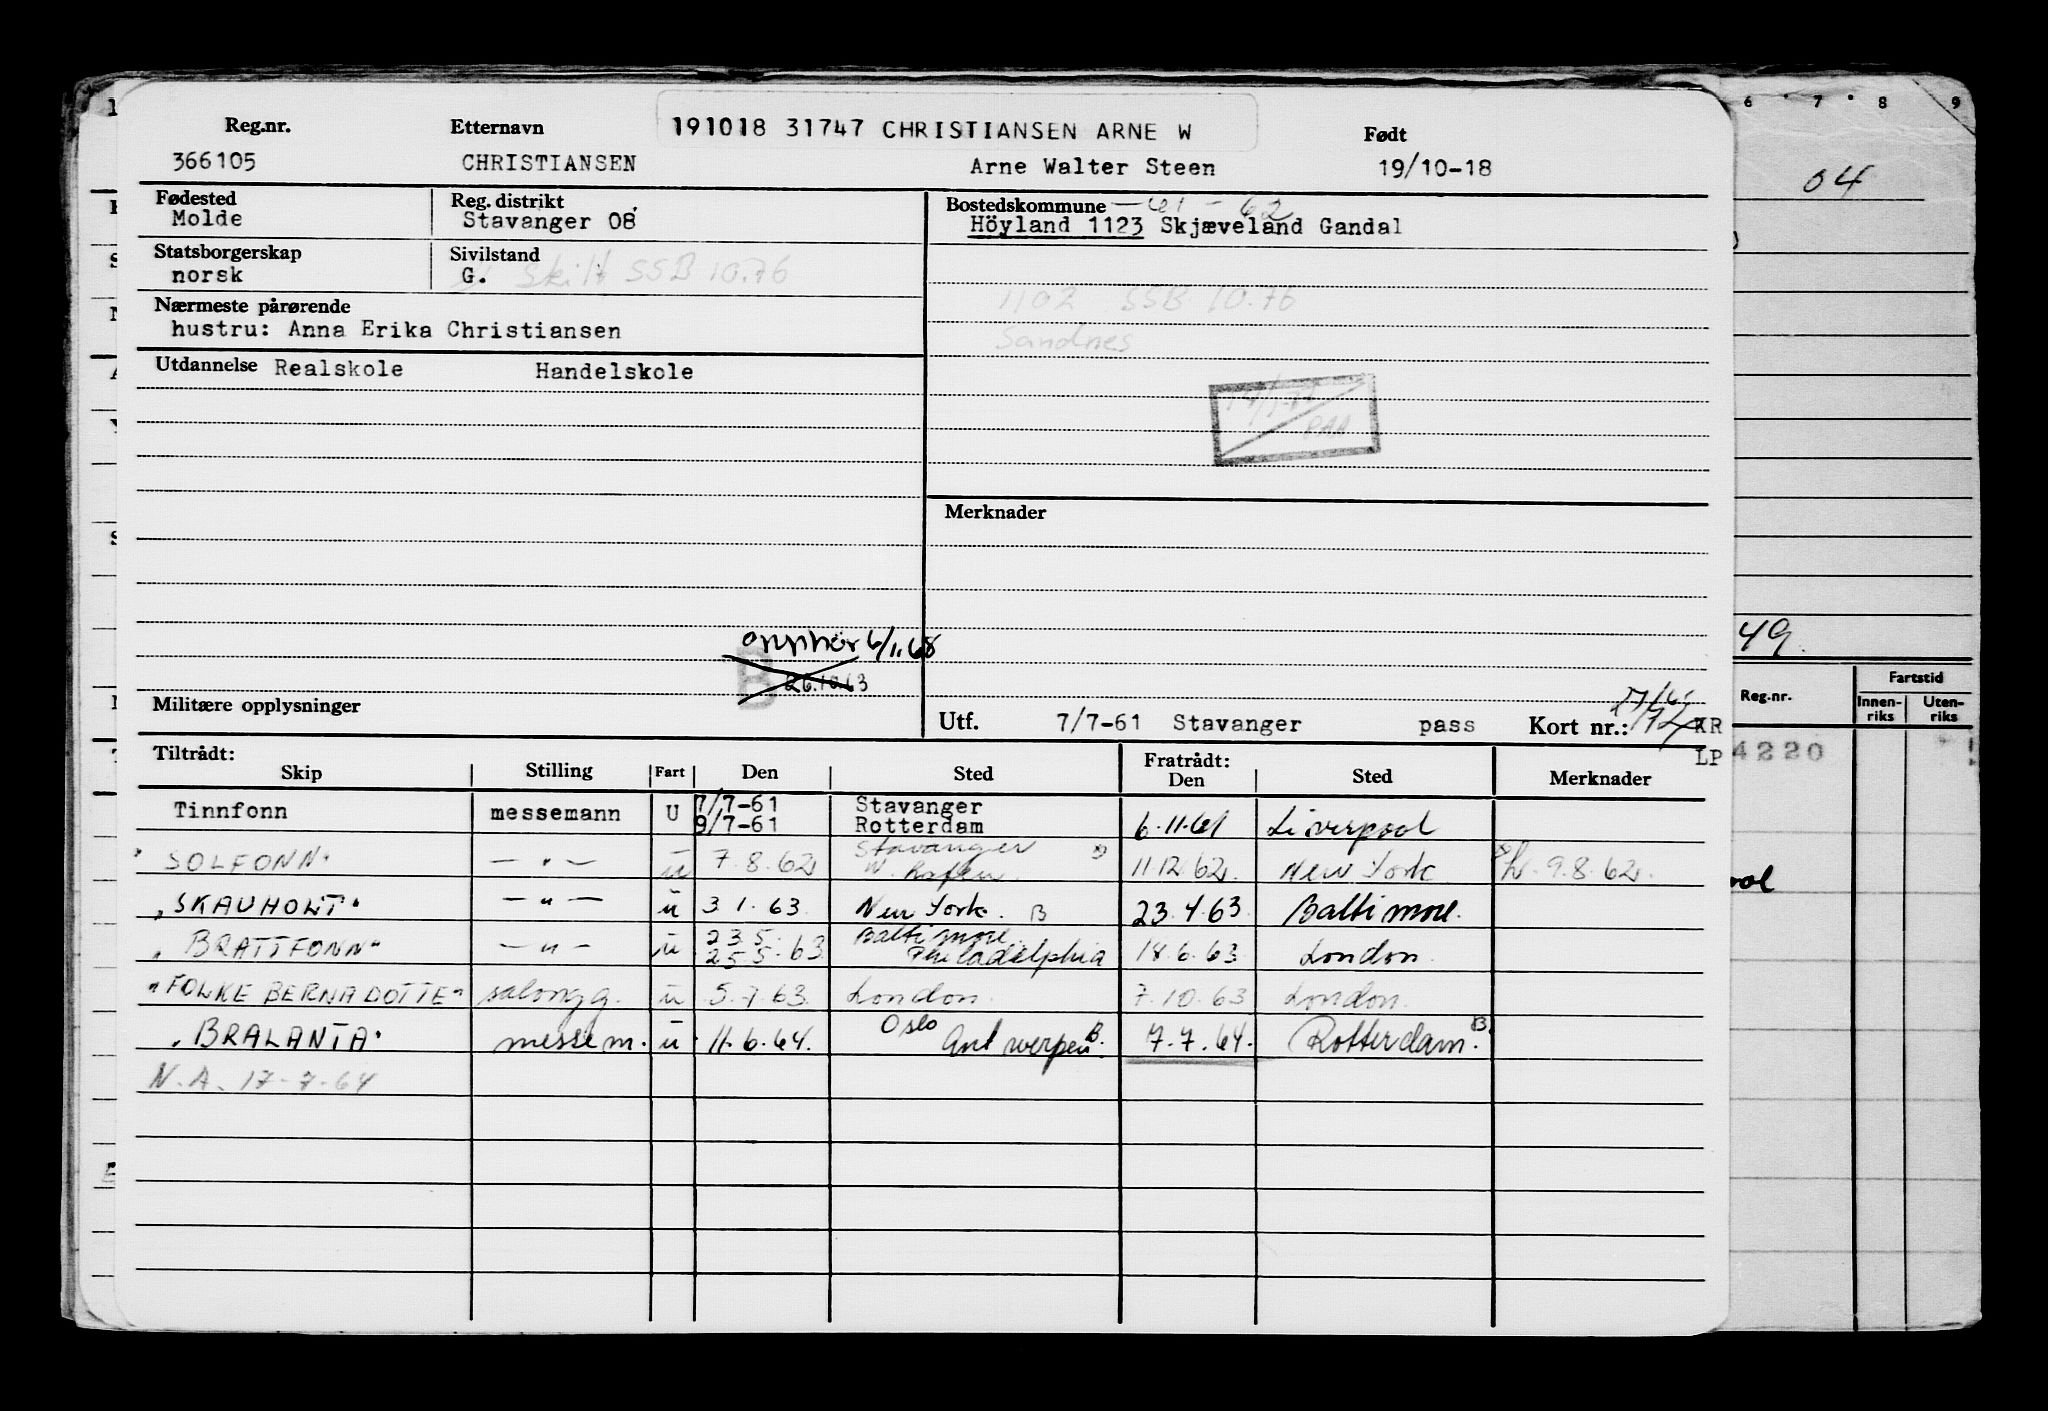 191018 31747 CHRISTIANSEN ARNE W
Reg.nr. Etternavn Født
366105 CHRISTIANSEN Arne Walter Steen 19/10-18
Fødested Reg. distrikt Bostedskommune — 61 - 62
Molde Stavanger 08 Höyland 1123 Skjæveland Gandal
Statsborgerskap Sivilstand
norsk G. Skilt SSB 10.76
1102 SSB 10.76
Nærmeste pårørende
hustru: Anna Erika Christiansen
Sandnes
Utdannelse Realskole Handelskole
PAA
Merknader
opphör 6/1.68
B 26.10.63
Militære opplysninger
Utf. 7/7-61 Stavanger pass Kort nr.: KR
LP
Tiltrådt: Fratrådt:
Skip Stilling Fart Den Sted Den Sted Merknader
Tinnfonn messemann U 7/7-61 Stavanger
9/7-61 Rotterdam 6.11.61 Liverpool
"SOLFONN" — " — u 7.8.62 Stavanger 11.12.62. New York 9.8.62.
"SKAUHOLT" — " — u 3.1.63 New York. B 23.4.63 Baltimore.
"BRATTFONN" — " — u 23.5. Baltimore
25.5.63 Philadelphia 18.6.63 London
"FOLKE BERNADOTTE" salongg. u 5.7.63. London. 7.10.63 London.
"BRALANTA" messem. u 11.6.64. Oslo Antwerpen B. 7.7.64. Rotterdam. B
N.A. 17-7-64
6 7 8 9
04
49.
Reg.nr. Fartstid
Innen-riks Uten-riks
4220